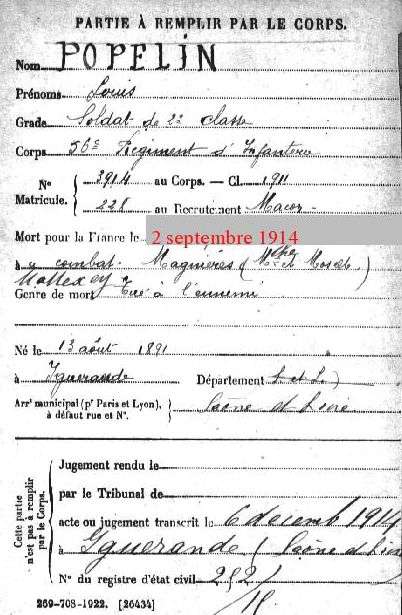 PARTIE À REMPLIR PAR LE CORPS.
Nom POPELIN
Prénoms Louis
Grade Soldat de 2e classe
Corps 56e Régiment d'Infanterie
N° Matricule. 3914 au Corps. — Cl. 1911
228 au Recrutement Macon
Mort pour la France le 2 septembre 1914
à combat Magnières (Mthe et Moselle)
Mattexey
Genre de mort Tué à l'ennemi
Né le 13 août 1891
à Iguerande Département S. et L.
Arrt municipal (pr Paris et Lyon), à défaut rue et N°. Saône et Loire
Cette partie n'est pas à remplir par le Corps.
Jugement rendu le
par le Tribunal de
acte ou jugement transcrit le 6 décemb 1914
à Iguerande (Saône et Loire
N° du registre d'état civil
269-708-1922. [26434]